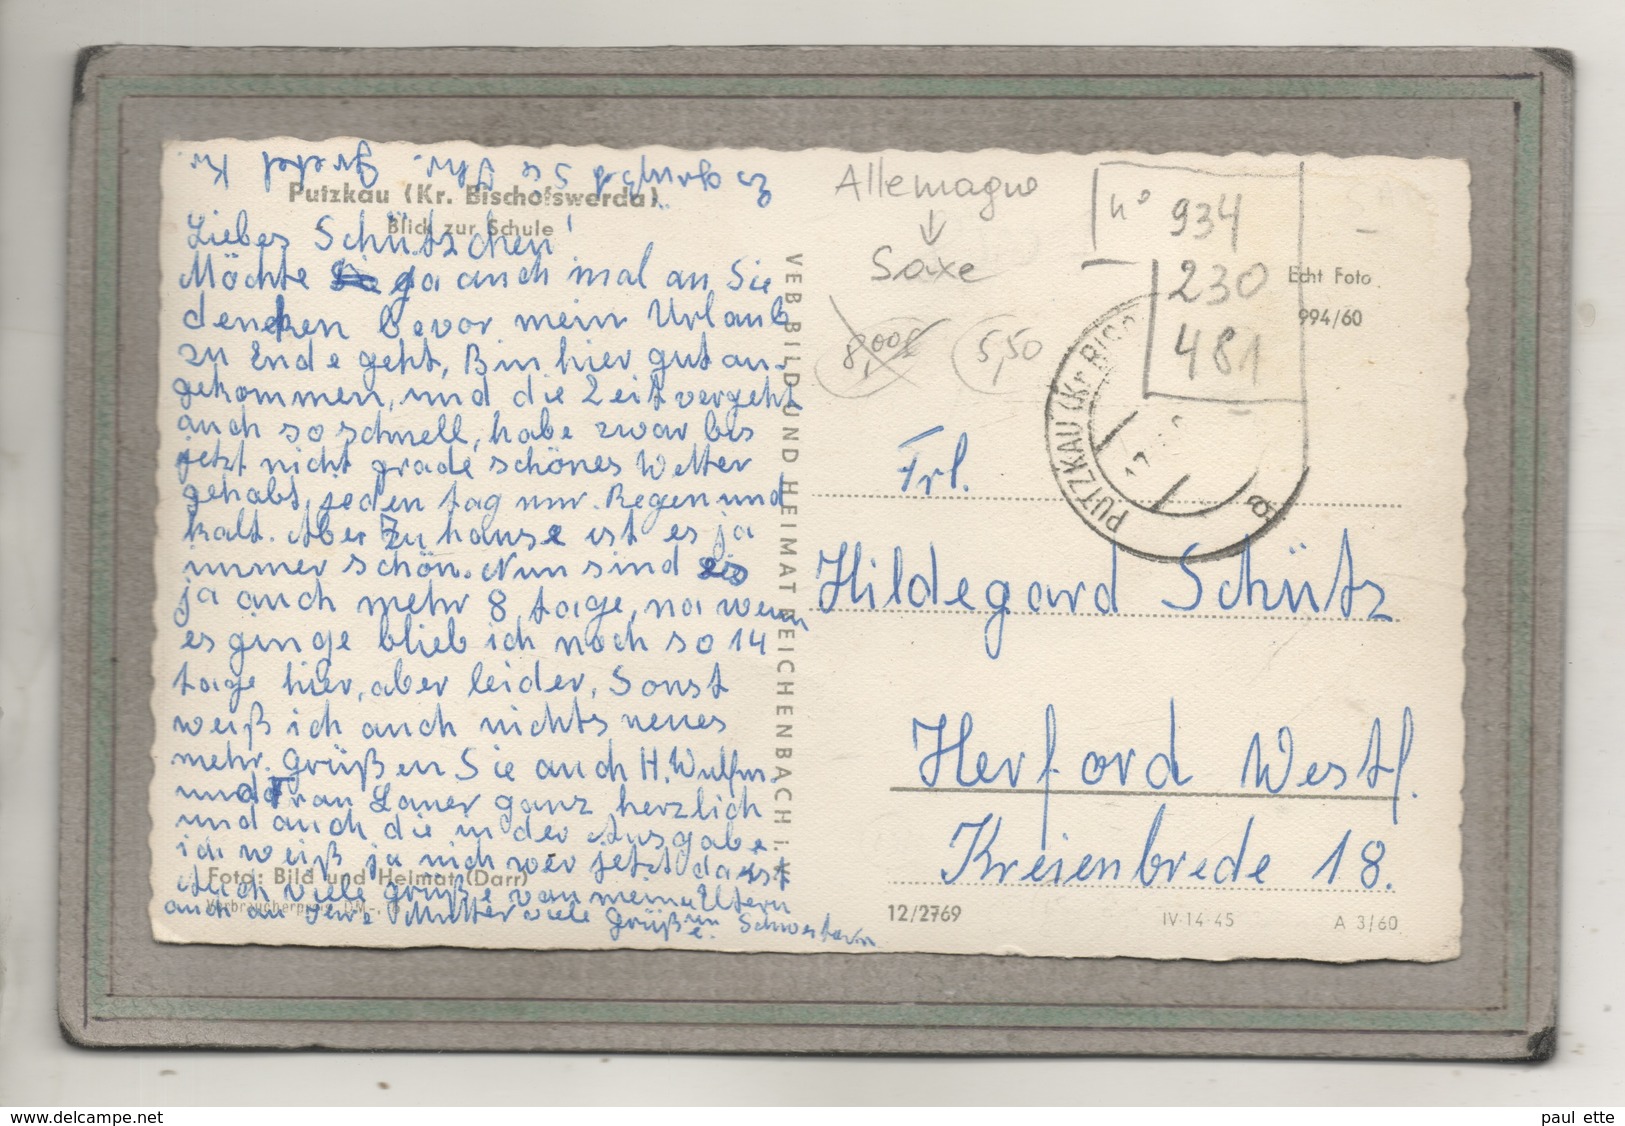 Putzkau (Kr. Bischofswerda)
Blick zur Schule
Liebes Schützchen!
Möchte ja auch mal an Sie
denken bevor mein Urlaub
zu Ende geht, Bin hier gut an-
gekommen, und die Zeit vergeht
auch so schnell, habe zwar bis
jetzt nicht grade schönes Wetter
gehabt, jeden tag nur Regen und
kalt. Aber Zu hause ist es ja
immer schön. Nun sind es
ja auch mehr 8 tage, na wenn
es ginge blieb ich noch so 14
tage hier, aber leider, Sonst
weiß ich auch nichts neues
mehr. Grüßen Sie auch H. Wulfm.
und Frau Laner ganz herzlich
und auch die in der Ausgabe
ich weiß ja nich wer jetzt da ist
Auch viele grüße von meinen Eltern
auch an Ihre Mutter viele Grüße. Schwestern
Foto: Bild und Heimat (Darr)
Verbraucherpreis DM
VEB BILD UND HEIMAT REICHENBACH i. V.
Allemagne
↓
Saxe
8,00€
5,50
n° 934
230
481
Echt Foto
994/60
PUTZKAU (Kr. BISCHO
17
a
Frl.
Hildegard Schütz
Herford Westf.
Kreienbrede 18.
12/2769
IV-14-45
A 3/60
www.delcampe.net
paul ette